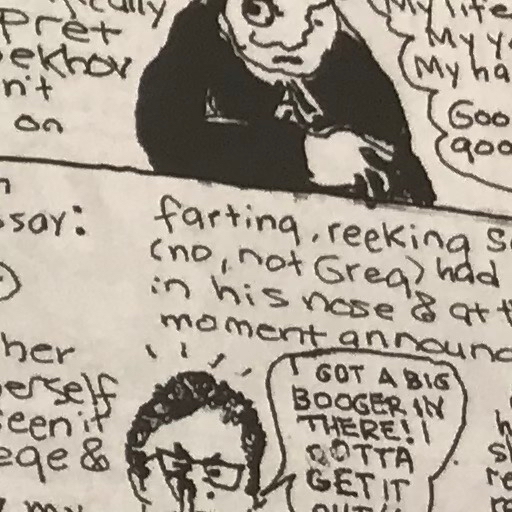 pret
ekhov
n't
on
My life
My y
My ha
Goo
goo
say:
her
erself
een it
ege &
my
farting, reeking s
(no, not Greg) had
in his nose & at t
moment announc
I GOT A BIG
BOOGER IN
THERE! I
GOTTA
GET IT
OUT!!